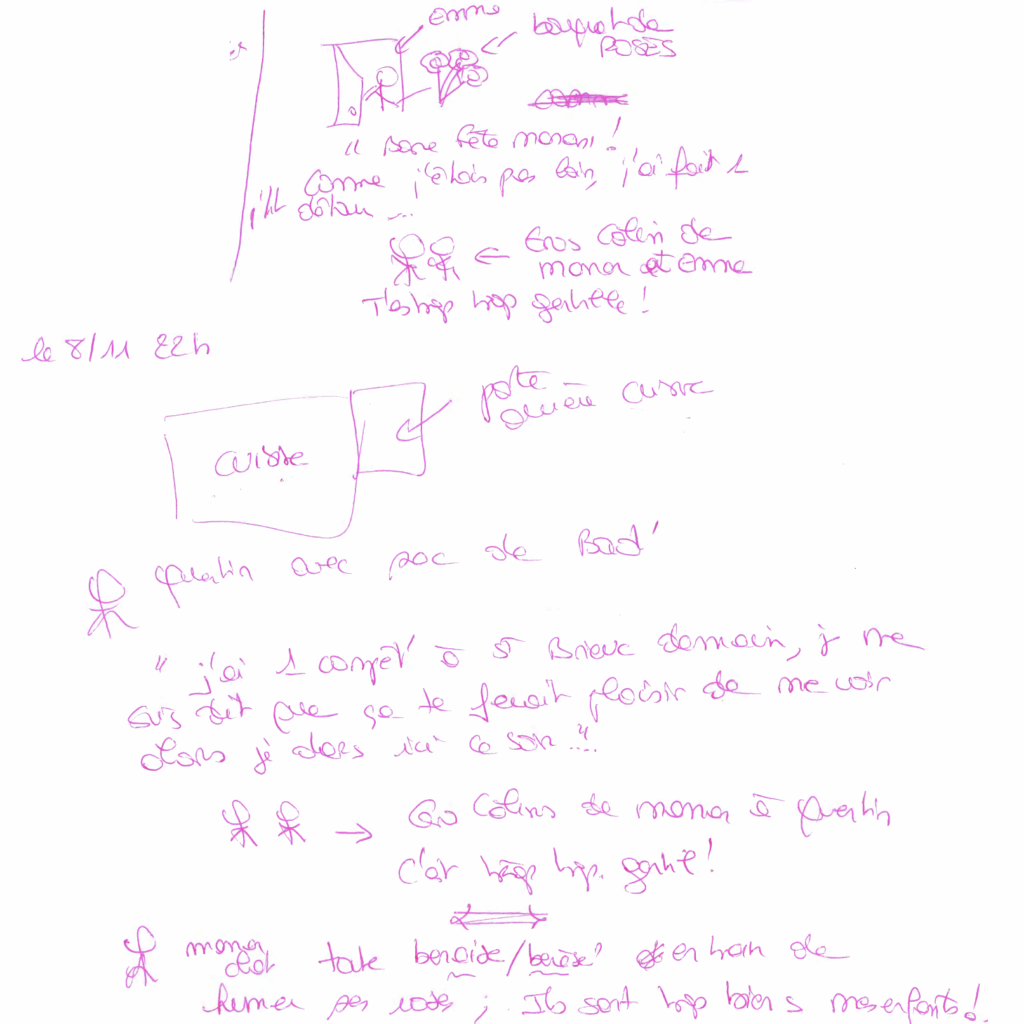 Emme
bouquet de
ROSES
" Bone fête maman!
Comme j'étais pas loin, j'ai fait 1
détour ...
← Gros Colin de
maman et Emme
T'es trop trop gentille !
le 8/11 22h
porte
arrière cuisine
cuisine
Quentin avec sac de Bad'
" j'ai 1 compèt' à St Brieuc demain, j me
suis dit que ça te ferait plaisir de me voir
alors je dors ici ce soir ..."
→ Gro Colins de maman à Quentin
C'est trop trop gentil !
maman
doit toute benoide/ en train de
pes ; Ils sont trop biens mes enfants !